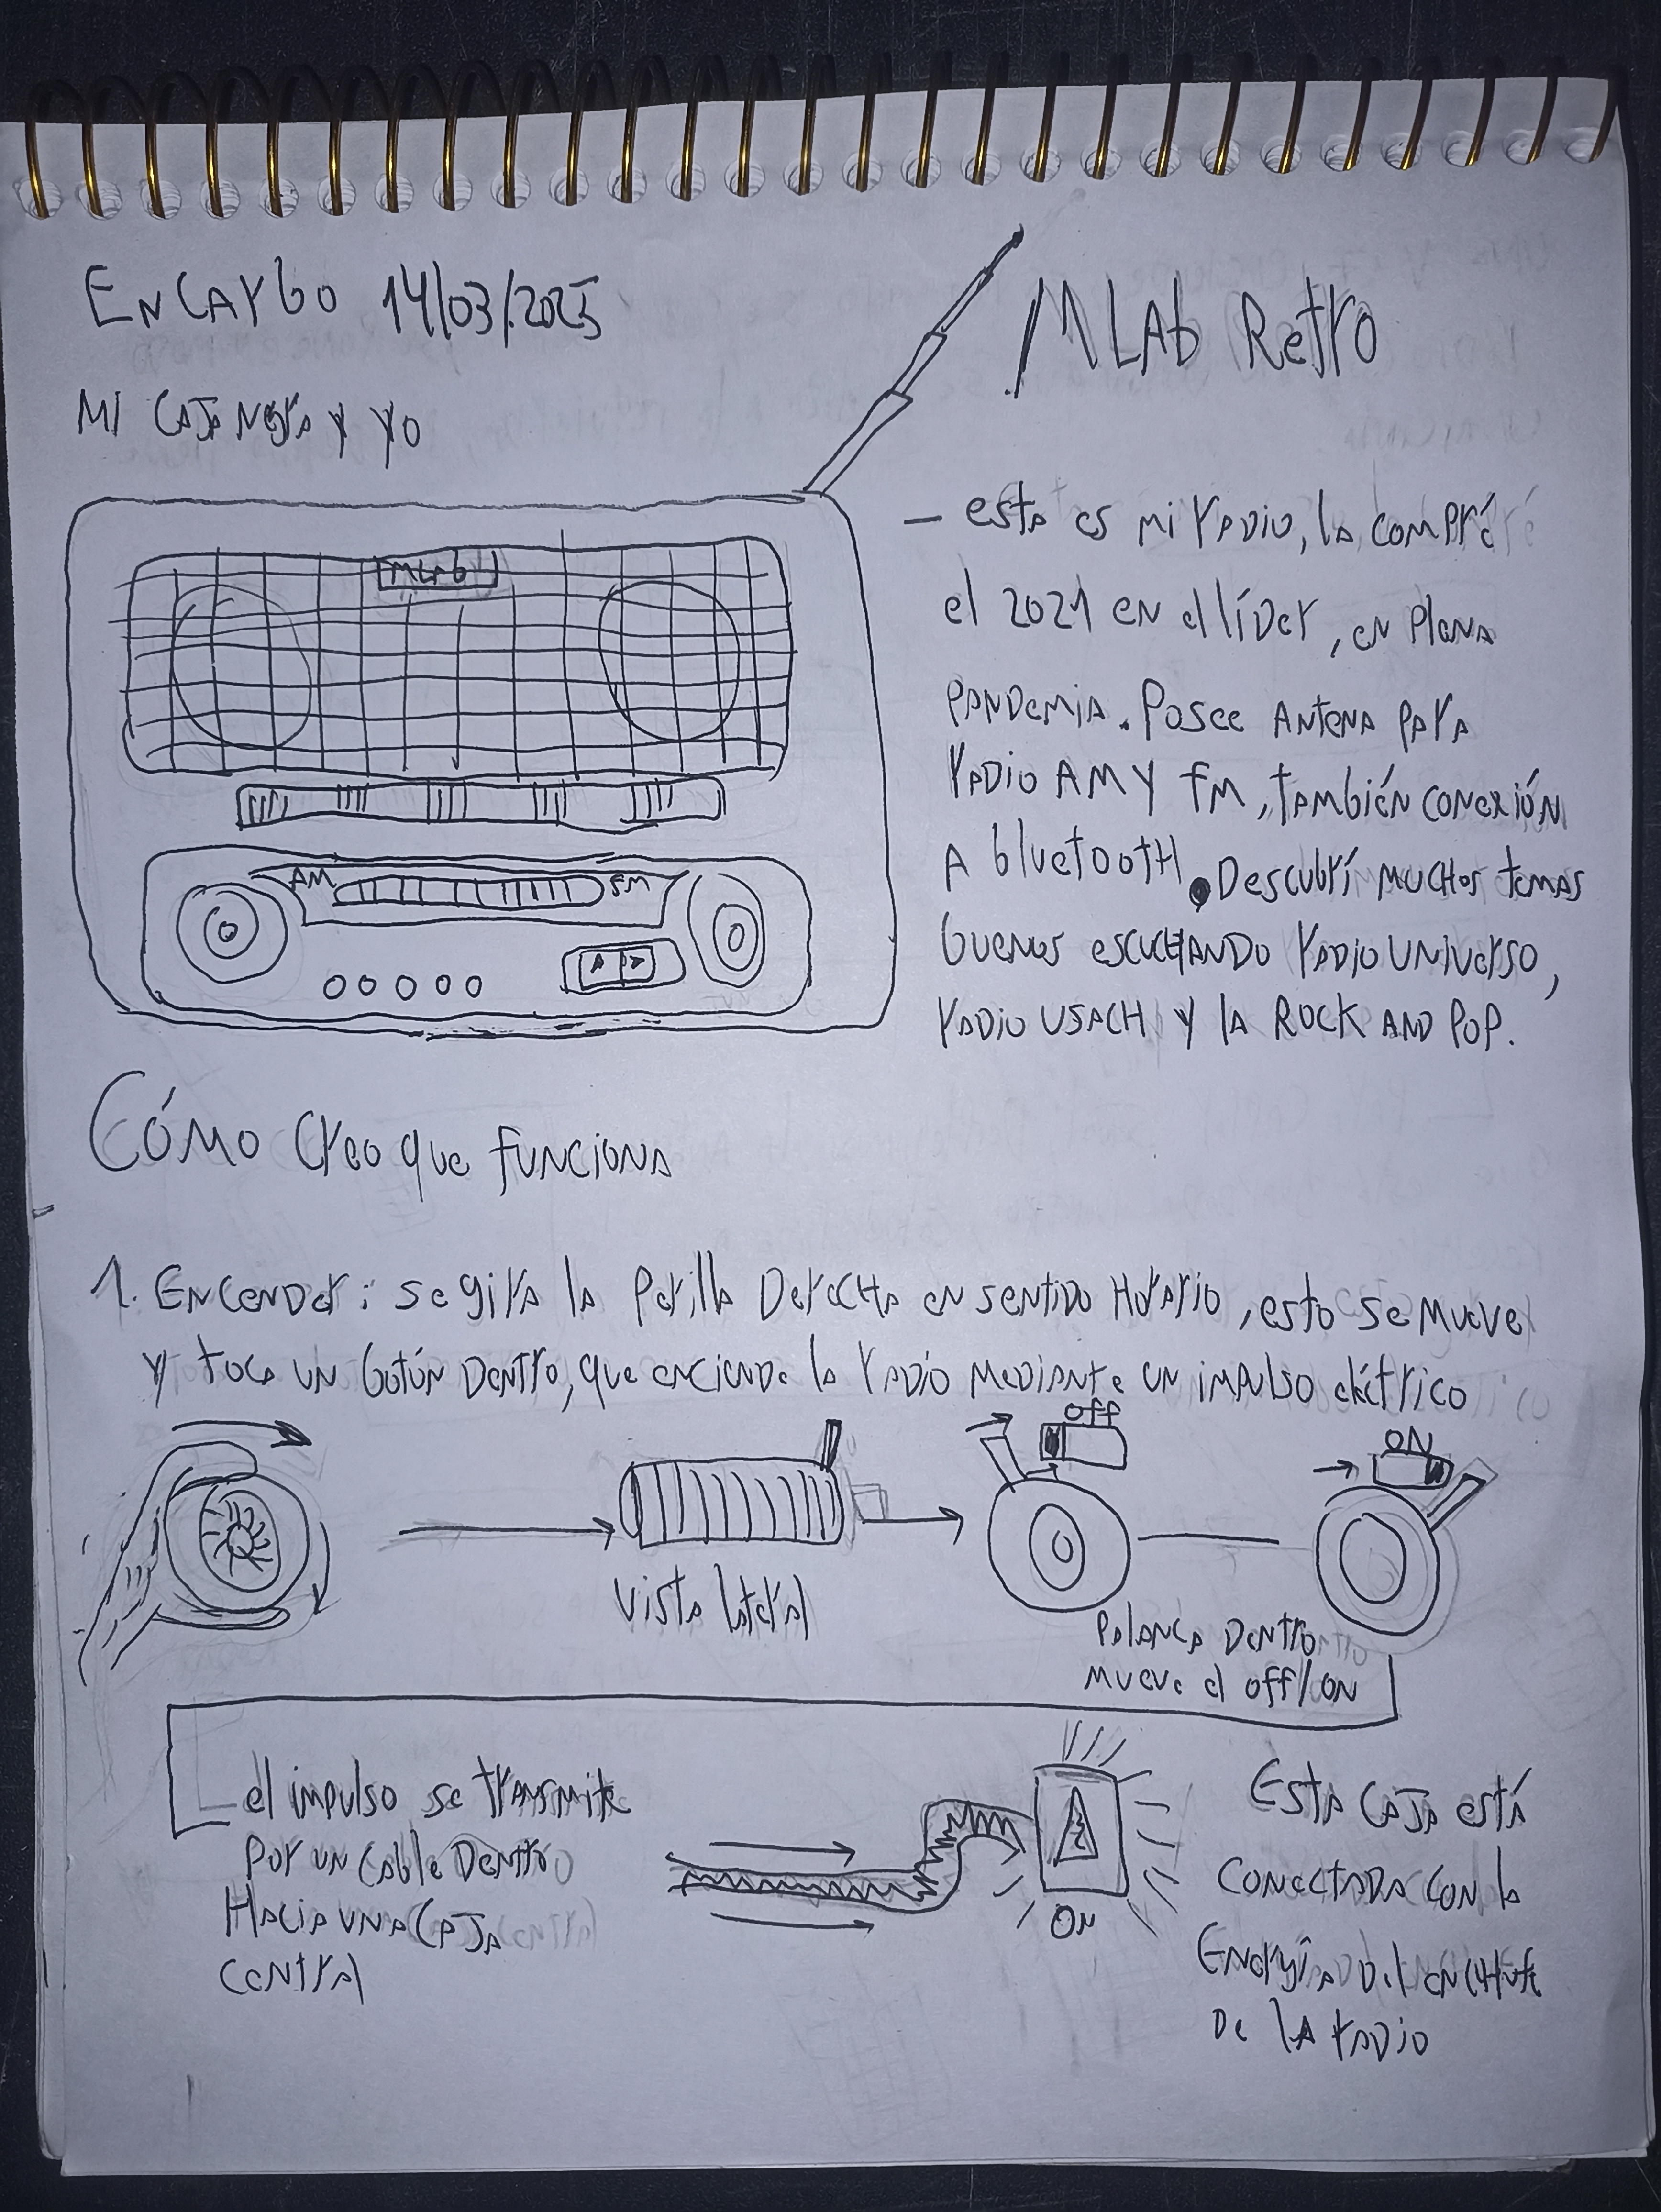 Encargo 14/03/2025
MLab Retro
Mi caja negra y yo
MLab
AM FM
- esta es mi radio, la compré
el 2021 en el líder, en plena
pandemia. Posee antena para
radio AM y FM, también conexión
a bluetooth. Descubrí muchos temas
buenos escuchando radio universo,
radio USACH y la ROCK AND POP.
Cómo creo que funciona
1. Encender: se gira la perilla derecha en sentido horario, esto se mueve
y toca un botón dentro, que enciende la radio mediante un impulso eléctrico
off
ON
vista lateral
Palanca dentro
mueve el off/on
el impulso se transmite
por un cable dentro
hacia una caja
central
ON
Esta caja está
conectada con la
Energía del enchufe
de la radio